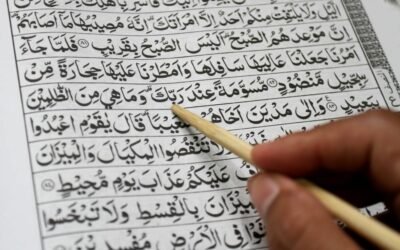 الَّيْلِ وَلَا يَلْتَفِتْ مِنْكُمْ اَحَدٌ اِلَّا امْرَاَتَكَ اِنَّهٗ مُصِيْبُهَا مَآ اَصَابَهُمْ
اِنَّ مَوْعِدَهُمُ الصُّبْحُ اَلَيْسَ الصُّبْحُ بِقَرِيْبٍ ٨١ فَلَمَّا جَآءَ
اَمْرُنَا جَعَلْنَا عَالِيَهَا سَافِلَهَا وَاَمْطَرْنَا عَلَيْهَا حِجَارَةً مِّنْ
سِجِّيْلٍ مَّنْضُوْدٍ ٨٢ مُّسَوَّمَةً عِنْدَ رَبِّكَ وَمَا هِيَ مِنَ الظّٰلِمِيْنَ
بِبَعِيْدٍ ٨٣ وَاِلٰى مَدْيَنَ اَخَاهُمْ شُعَيْبًا قَالَ يٰقَوْمِ اعْبُدُوا
وَلَا تَنْقُصُوا الْمِكْيَالَ وَالْمِيْزَانَ
عَلَيْكُمْ عَذَابَ يَوْمٍ مُّحِيْطٍ ٨٤
بِالْقِسْطِ وَلَا تَبْخَسُوا
فِى الْاَرْضِ مُفْسِدِيْنَ